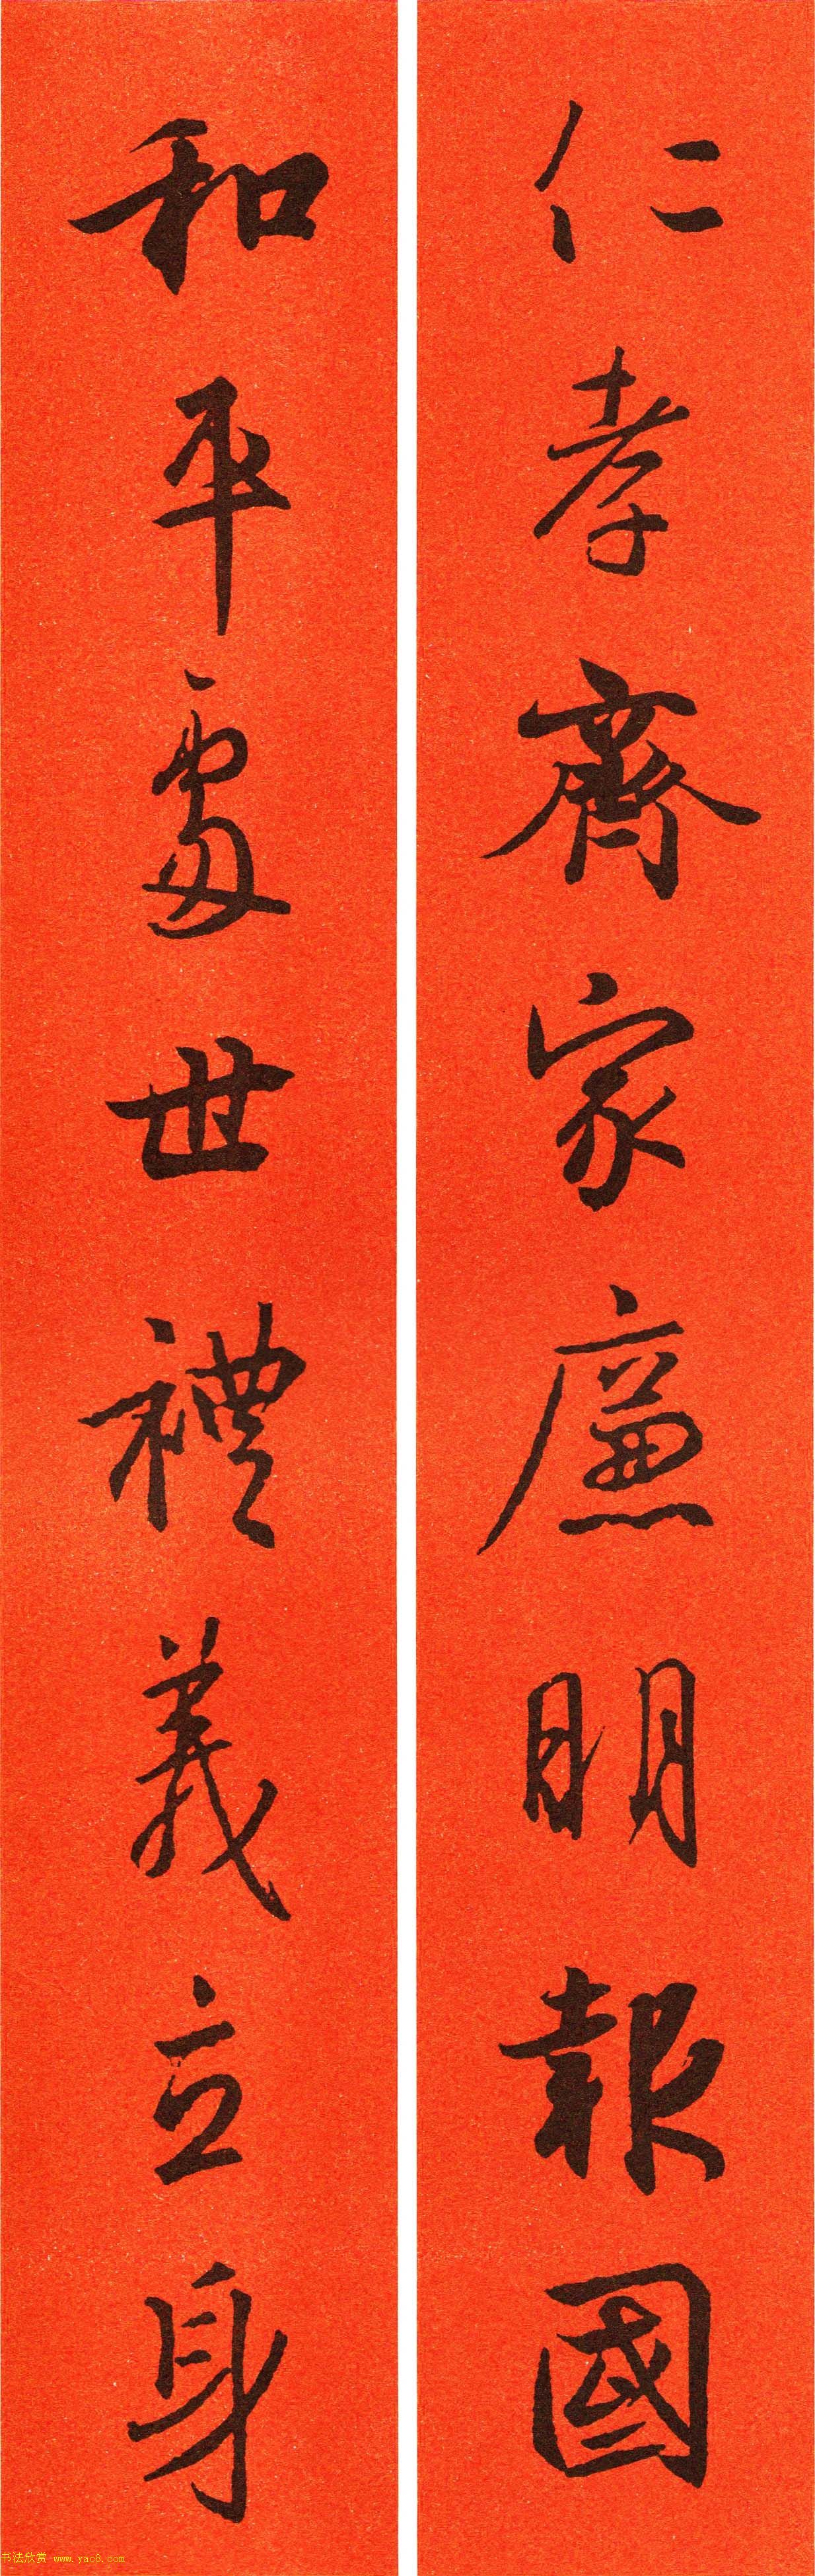 仁孝齊家廉明報國
和平處世禮義立身
书法欣赏 www.yac8.com